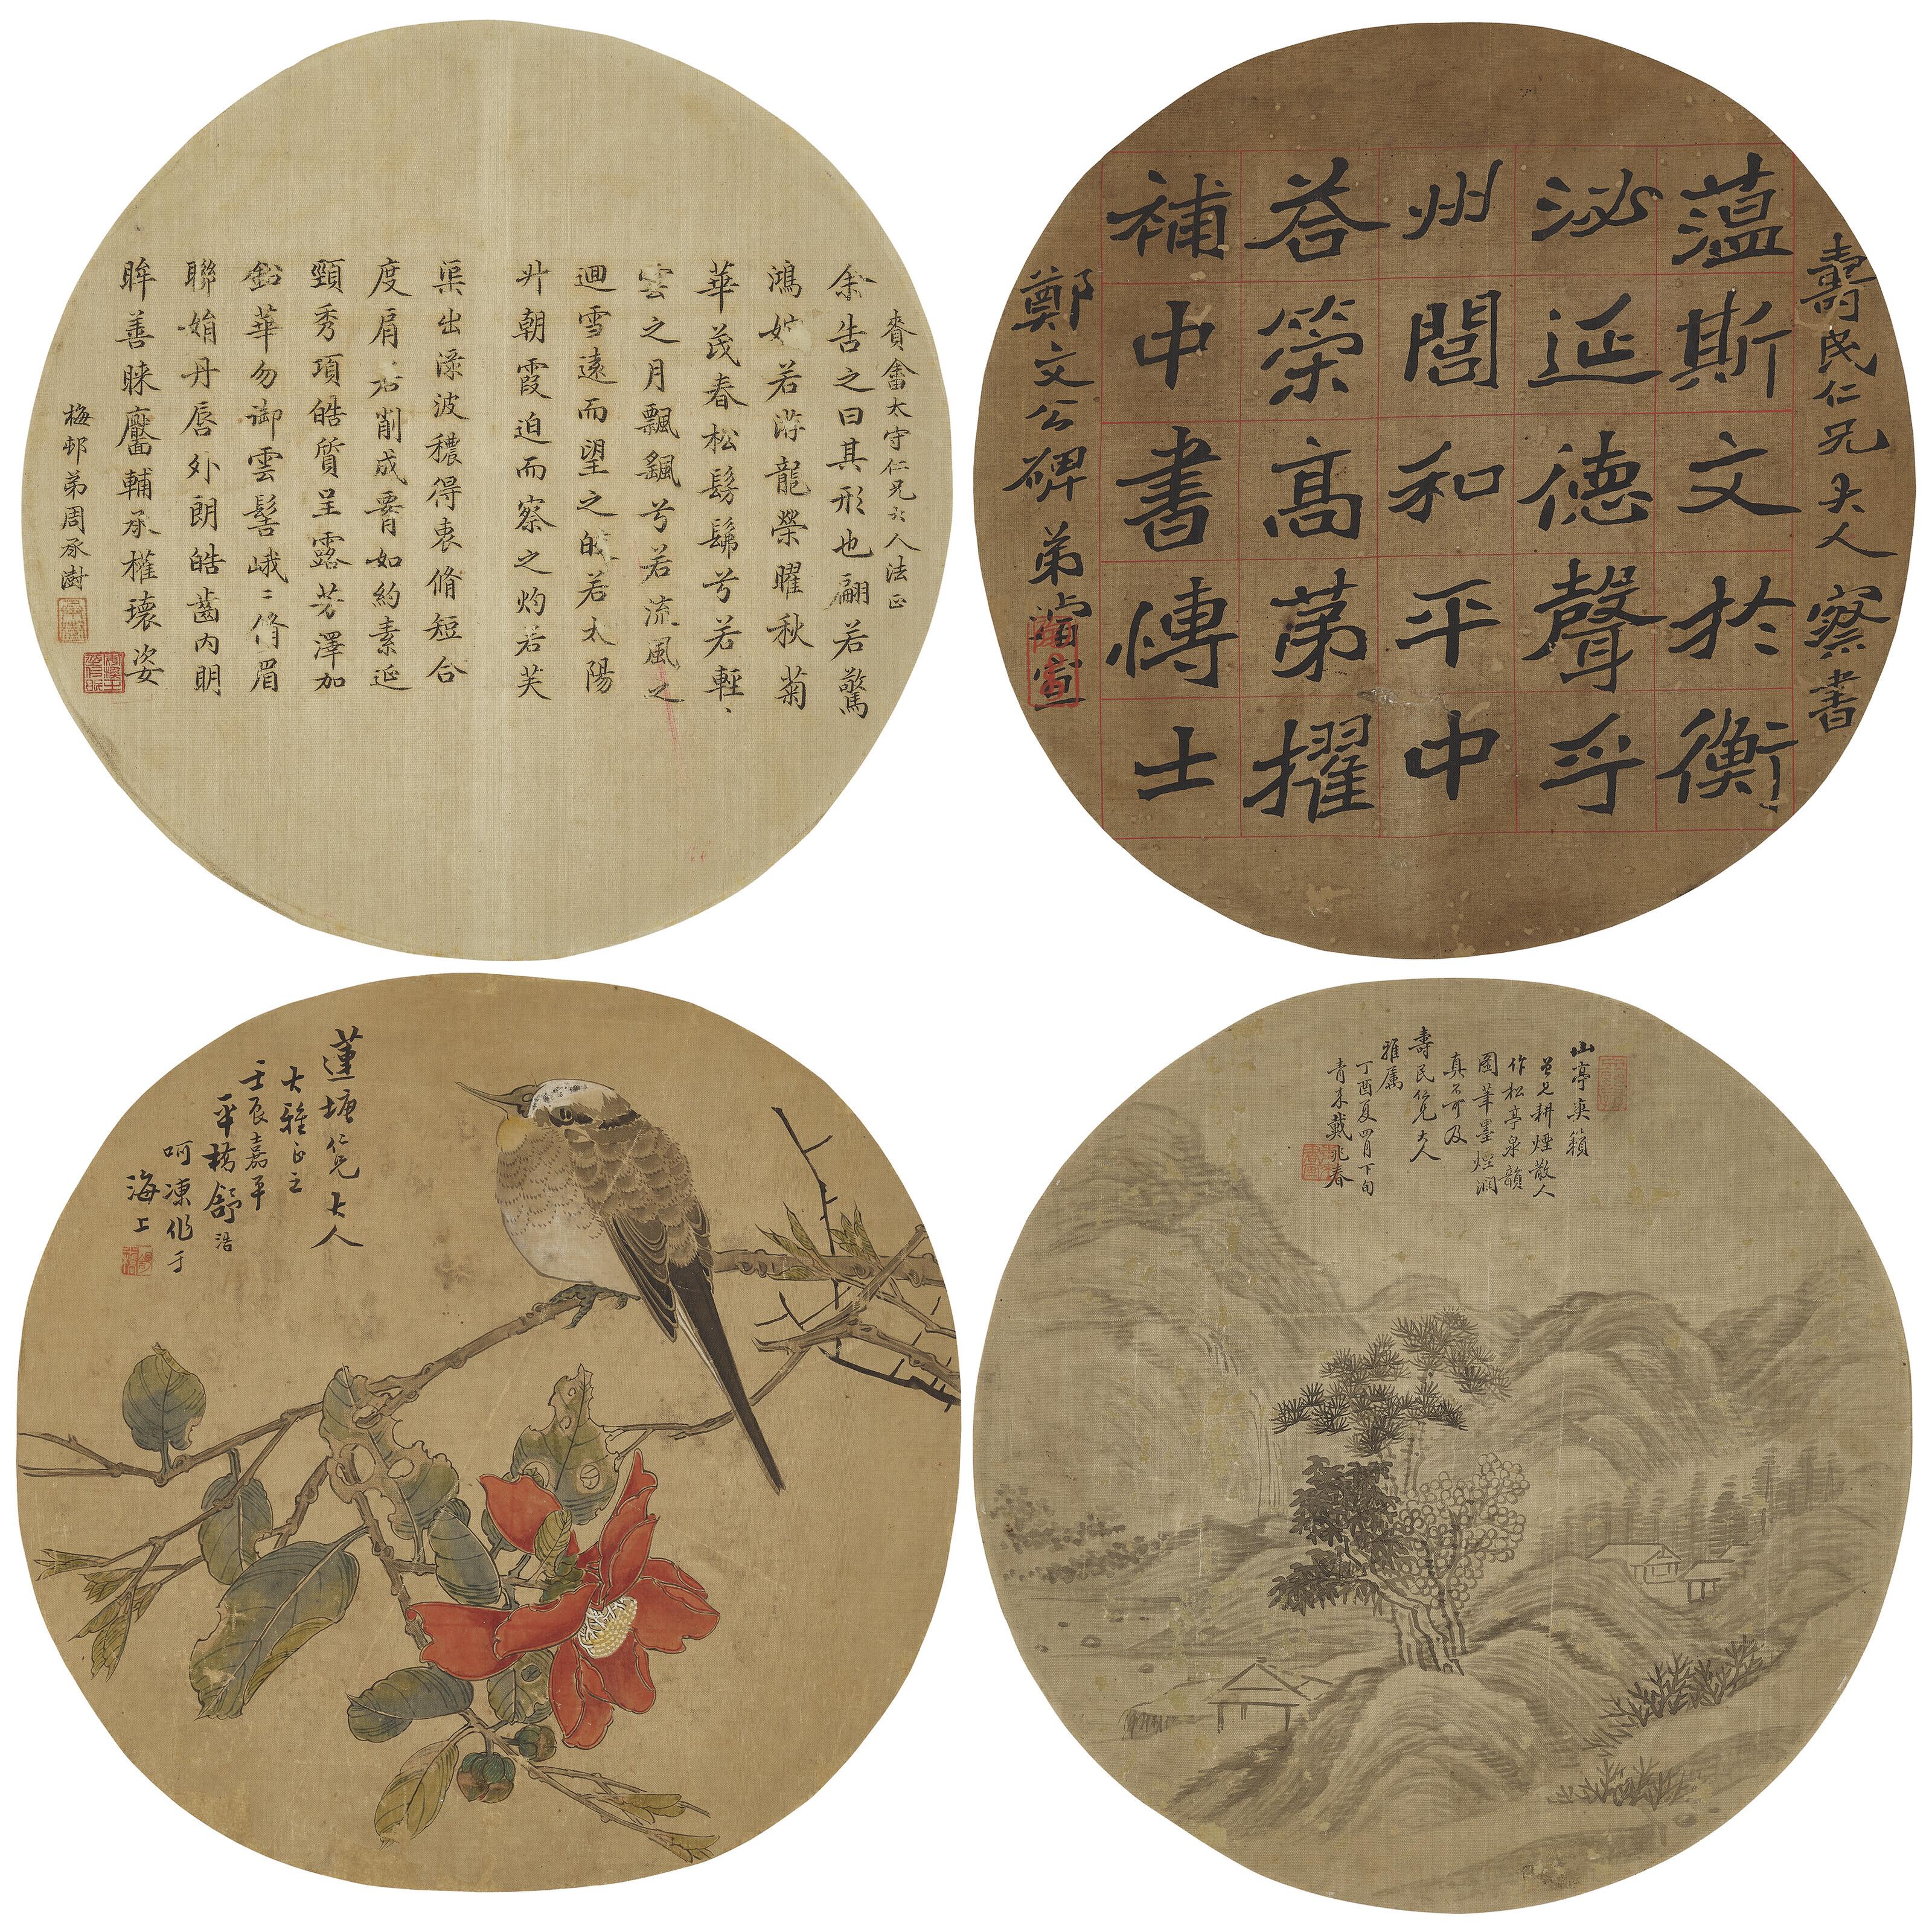 賚畬太守仁兄大人法正
余告之曰其形也翩若驚
鴻婉若游龍榮曜秋菊
華茂春松髣髴兮若輕
雲之月飄颻兮若流風之
迴雪遠而望之皎若太陽
升朝霞迫而察之灼若芙
渠出淥波穠得衷脩短合
度肩若削成要如約素延
頸秀項皓質呈露芳澤加
鉛華勿御雲髻峨〻脩眉
聯娟丹唇外朗皓齒內明
眸善睞靨輔承權瓌姿
梅邨弟周承澍
壽民仁兄大人察書
薀斯文於衡
泌延德聲乎
州閭和平中
荅榮高苐擢
補中書博士
鄭文公碑弟陶濬宣
蓮塘仁兄大人
大雅正之
壬辰嘉平
平橋舒浩
呵凍作于
海上
山亭奕籟
曾見耕煙散人
作松亭泉韻
圖筆墨煙潤
真不可及
壽民仁兄大人
雅屬
丁酉夏四月下旬
青來戴兆春